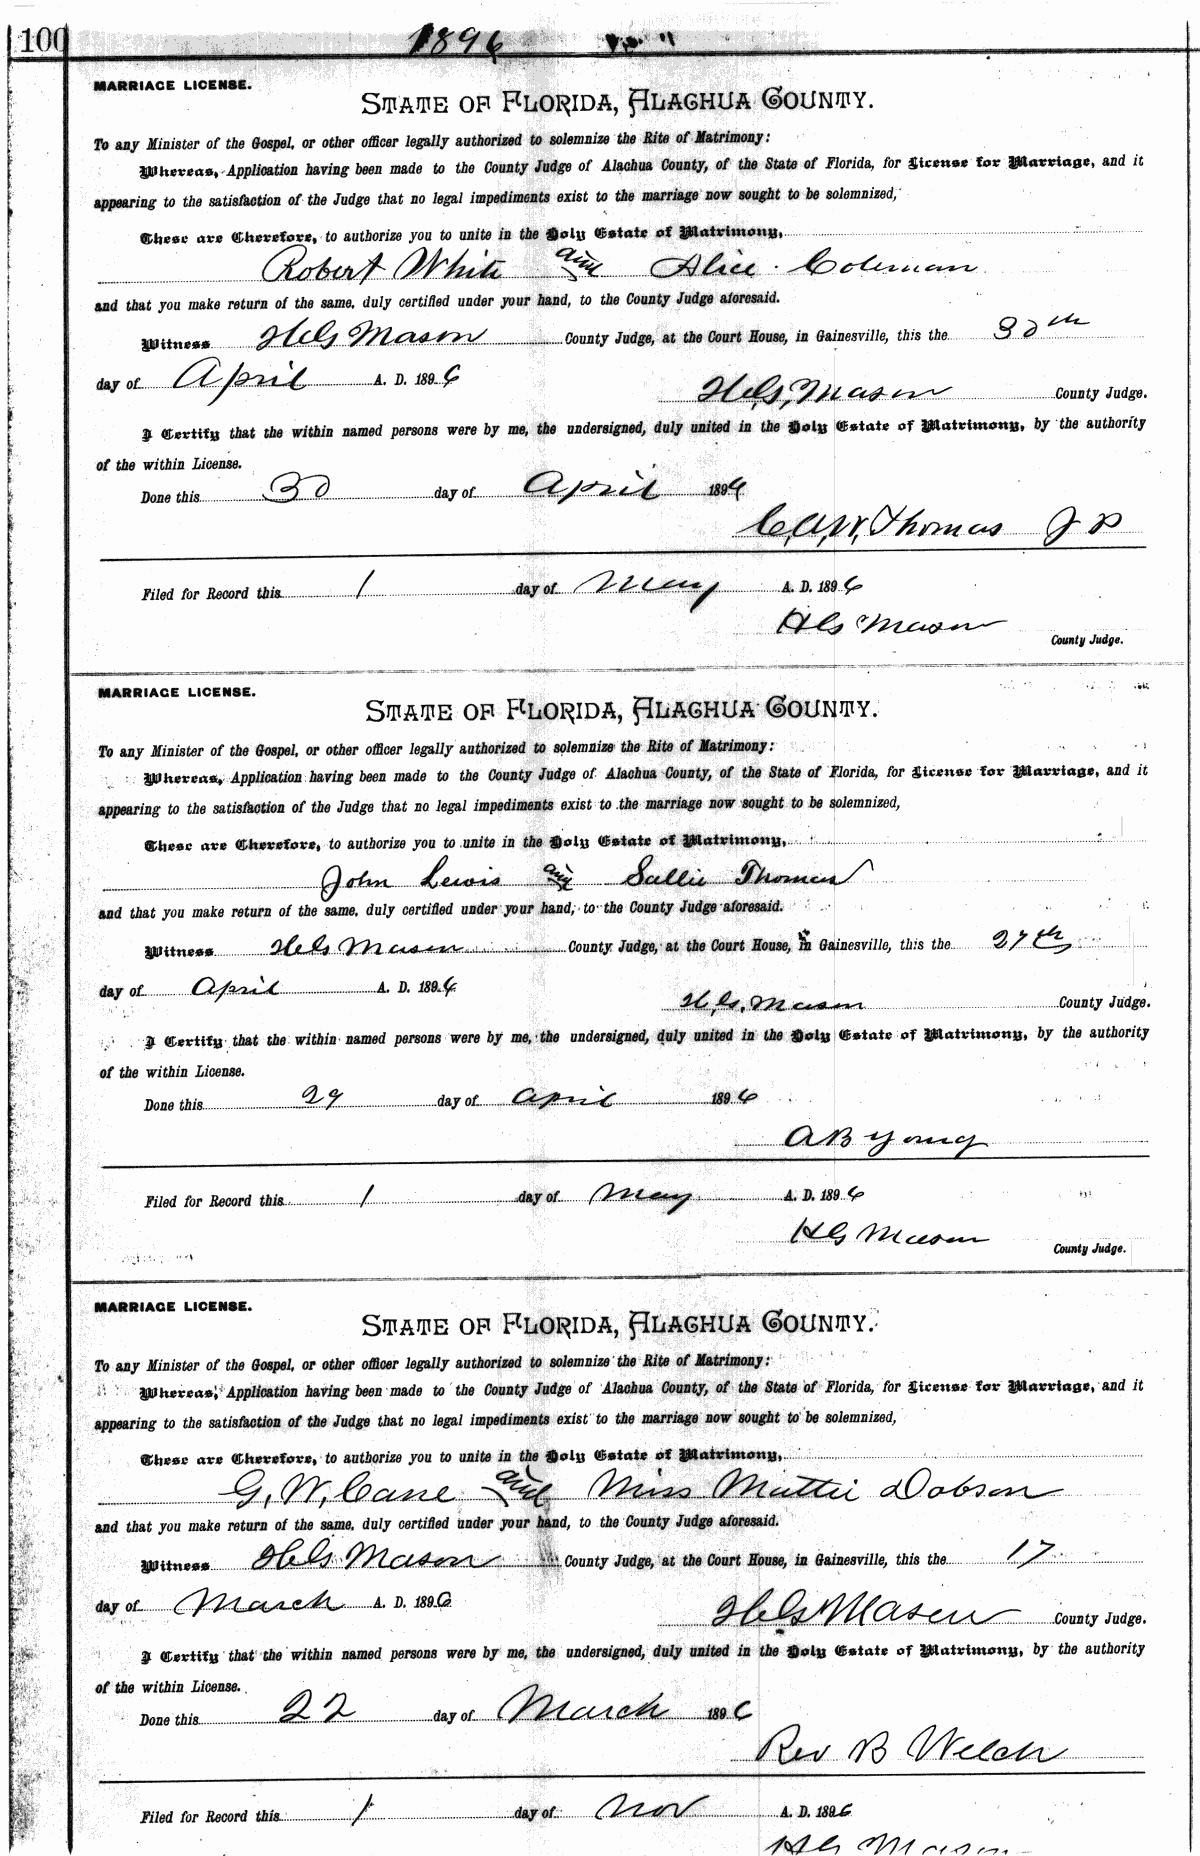 100 1896
MARRIAGE LICENSE.
STATE OF FLORIDA, ALACHUA COUNTY.
To any Minister of the Gospel, or other officer legally authorized to solemnize the Rite of Matrimony:
Whereas, Application having been made to the County Judge of Alachua County, of the State of Florida, for License for Marriage, and it
appearing to the satisfaction of the Judge that no legal impediments exist to the marriage now sought to be solemnized,
These are Therefore, to authorize you to unite in the Holy Estate of Matrimony,
Robert White and Alice Coleman
and that you make return of the same, duly certified under your hand, to the County Judge aforesaid.
Witness H. G. Mason County Judge, at the Court House, in Gainesville, this the 30th
day of April A. D. 1896
H. G. Mason County Judge.
I Certify that the within named persons were by me, the undersigned, duly united in the Holy Estate of Matrimony, by the authority
of the within License.
Done this 30 day of April 1896
C. A. W. Thomas J P
Filed for Record this 1 day of May A. D. 1896
H G Mason
County Judge.
MARRIAGE LICENSE.
STATE OF FLORIDA, ALACHUA COUNTY.
To any Minister of the Gospel, or other officer legally authorized to solemnize the Rite of Matrimony:
Whereas, Application having been made to the County Judge of Alachua County, of the State of Florida, for License for Marriage, and it
appearing to the satisfaction of the Judge that no legal impediments exist to the marriage now sought to be solemnized,
These are Therefore, to authorize you to unite in the Holy Estate of Matrimony,
John Lewis and Sallie Thomas
and that you make return of the same, duly certified under your hand, to the County Judge aforesaid.
Witness H G Mason County Judge, at the Court House, in Gainesville, this the 27th
day of April A. D. 1896
H. G. Mason County Judge.
I Certify that the within named persons were by me, the undersigned, duly united in the Holy Estate of Matrimony, by the authority
of the within License.
Done this 29 day of April 1896
A B Young
Filed for Record this 1 day of May A. D. 1896
H G Mason
County Judge.
MARRIAGE LICENSE.
STATE OF FLORIDA, ALACHUA COUNTY.
To any Minister of the Gospel, or other officer legally authorized to solemnize the Rite of Matrimony:
Whereas, Application having been made to the County Judge of Alachua County, of the State of Florida, for License for Marriage, and it
appearing to the satisfaction of the Judge that no legal impediments exist to the marriage now sought to be solemnized,
These are Therefore, to authorize you to unite in the Holy Estate of Matrimony,
G. W. Cane and Miss Mattie Dobson
and that you make return of the same, duly certified under your hand, to the County Judge aforesaid.
Witness H G Mason County Judge, at the Court House, in Gainesville, this the 17
day of March A. D. 1896
H G Mason County Judge.
I Certify that the within named persons were by me, the undersigned, duly united in the Holy Estate of Matrimony, by the authority
of the within License.
Done this 22 day of March 1896
Rev B Welch
Filed for Record this 1 day of Nov A. D. 1896
H G Mason